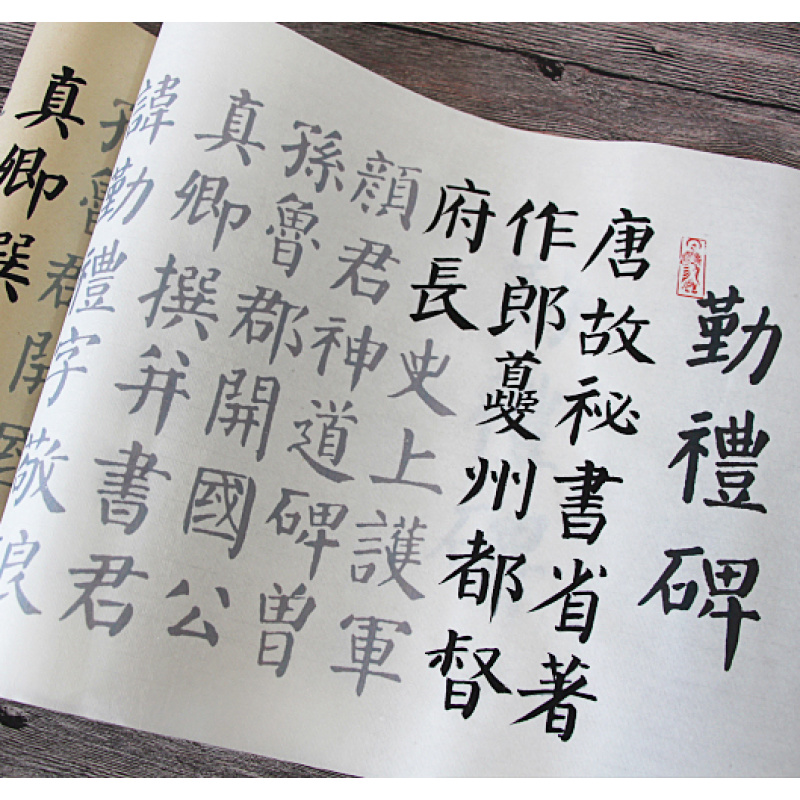 勤禮碑
唐故祕書省著
作郎夔州都督
府長史上護軍
顏君神道碑曾
孫魯郡開國公
真卿撰并書君
諱勤禮字敬
孫魯君開
真卿撰